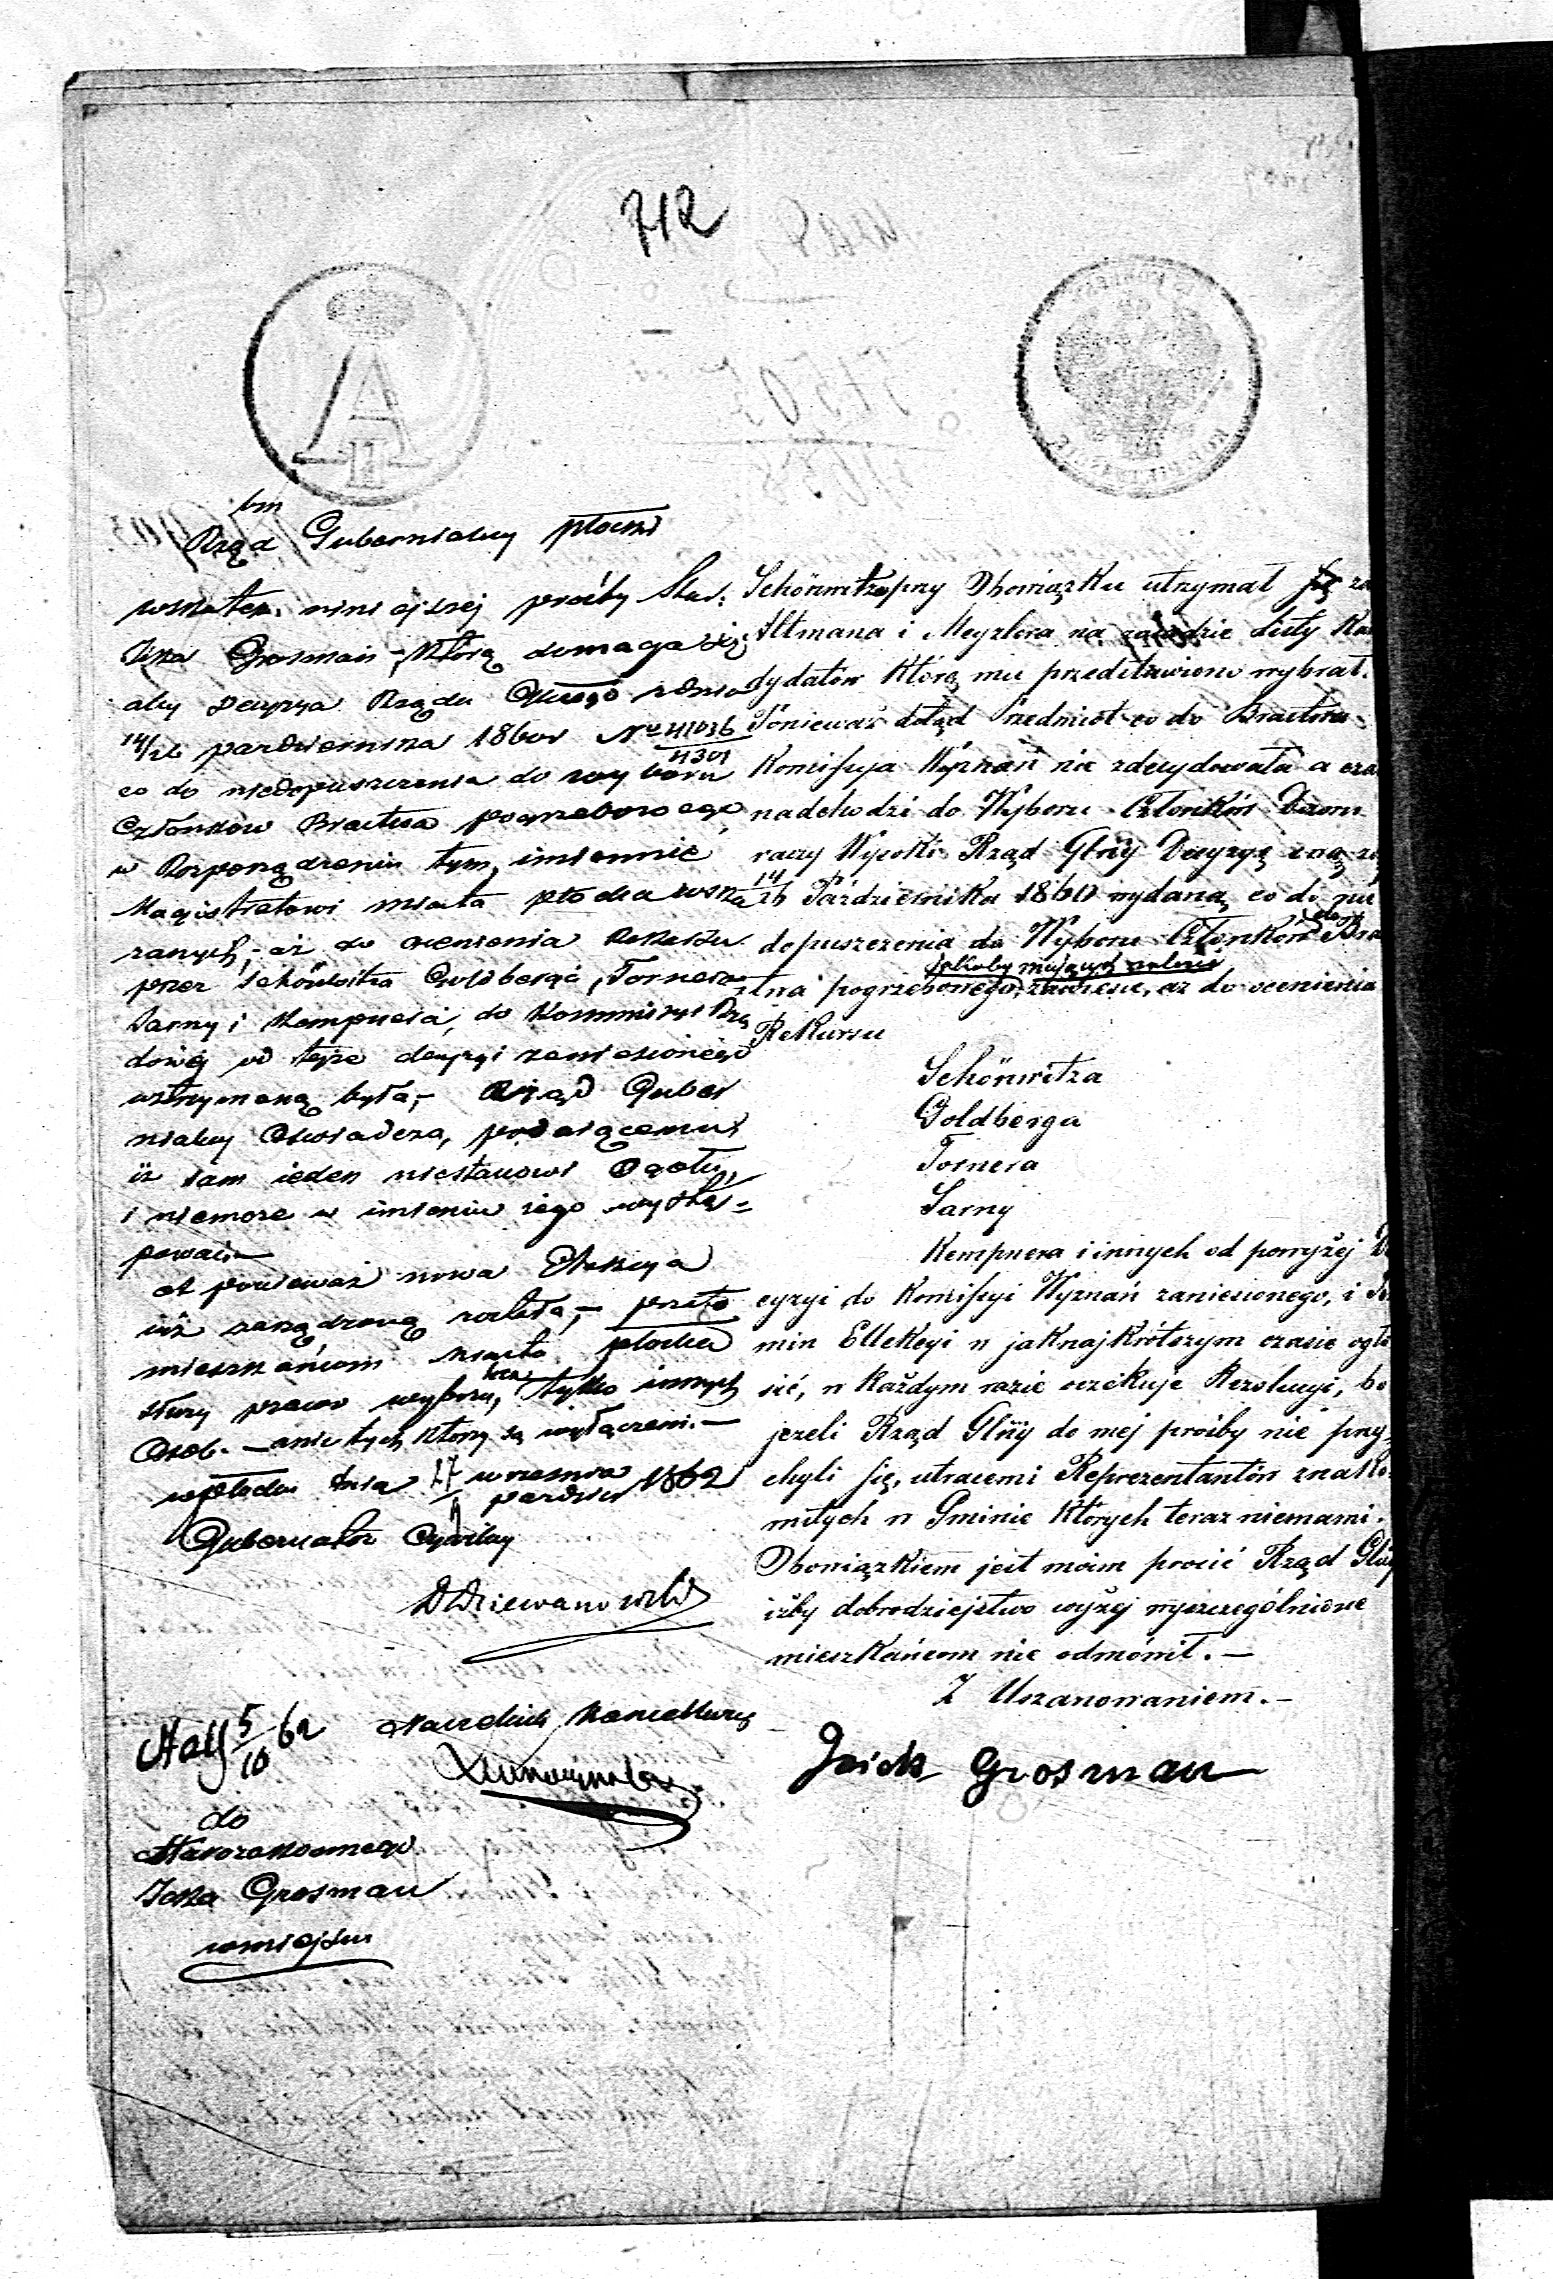 712
A
II
bm
Rząd Gubernialny płocki
wskutek niniejszej prośby Star:
Icka Grosman – którą domaga się
aby decyzya Rządu Gbnego z dnia
14/26 października 1860r N° 41036/11301
co do niedopuszczenia do wyboru
Członków Bractwa pogrzebowego
w Rozporządzeniu tym, imiennie
Magistratowi miasta płocka wska
zanych, – aż do ocenienia Rekursu
przez Schönwitza Goldberga, Tornera
Sarny i Kempnera, do Kommissyi Rzą
dowej od tejże decyzyi zaniesionego
wstrzymaną była, – Rząd Guber
nialny Oświadcza, podającemu
iż sam ieden niestanowi Ogółu,
i niemoże w imieniu iego wystę=
pować. –
A ponieważ nowa Elekcya
iuż zarządzoną została, – przeto
mieszkańcom miasta płocka
służy prawo wyboru, lecz tylko innych
Osób. – a nie tych którzy są wyłączeni. –
w płocku dnia 27 września / 9 paździer 1862
Gubernator Cywilny
Dziewanowski
Naczelnik Kancellaryi
5/10 62
do
Starozakonnego
Icka Grosman
w miejscu
Schönwitza przy Obowiązku utrzymał za
Altmana i Meyzlera na zasadzie Listy Kan
dydatów którą mu przedstawiono wybrał.
Ponieważ dotąd Przedmiot co do Bractwa
Komissya Wyznań nie zdecydowała a cza
nadchodzi do Wyboru Członków Dozoru
raczy Wysoki Rząd Glny Decyzyę swą z
14/26 Października 1860 wydaną co do nie
dopuszczenia do Wyboru Członków Bra
jakoby mających należeć
ctwa pogrzebowego, zawiesić, aż do ocenienia
Rekursu
Schönwitza
Goldberga
Tornera
Sarny
Kempnera i innych od powyżej De
cyzyi do Komissyi Wyznań zaniesionego, i Ter
min Ellekcyi w jaknajkrótszym czasie ogło
sić, w każdym razie oczekuje Rezolucyi, bo
jeżeli Rząd Glny do mej prośby nie przy
chyli się, utracemi Reprezentantów znako
mitych w Gminie których teraz niemami.
Obowiązkiem jest moim prosić Rząd Glny
iżby dobrodziejstwo wyżej wyszczególnione
mieszkańcom nie odmówił. –
Z Uszanowaniem. –
Icick Grosman